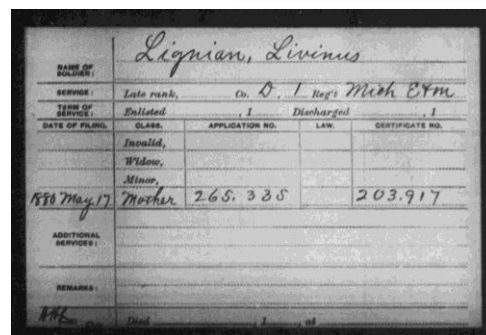 NAME OF SOLDIER: Lignian, Livinus
SERVICE: Late rank, Co. D. 1 Reg't Mich E & M
TERM OF SERVICE: Enlisted , 1 Discharged , 1
DATE OF FILING. CLASS. APPLICATION NO. LAW. CERTIFICATE NO.
Invalid,
Widow,
Minor,
1880 May 17 Mother 265.335 203.917
ADDITIONAL SERVICES:
REMARKS:
Died , 1 , at